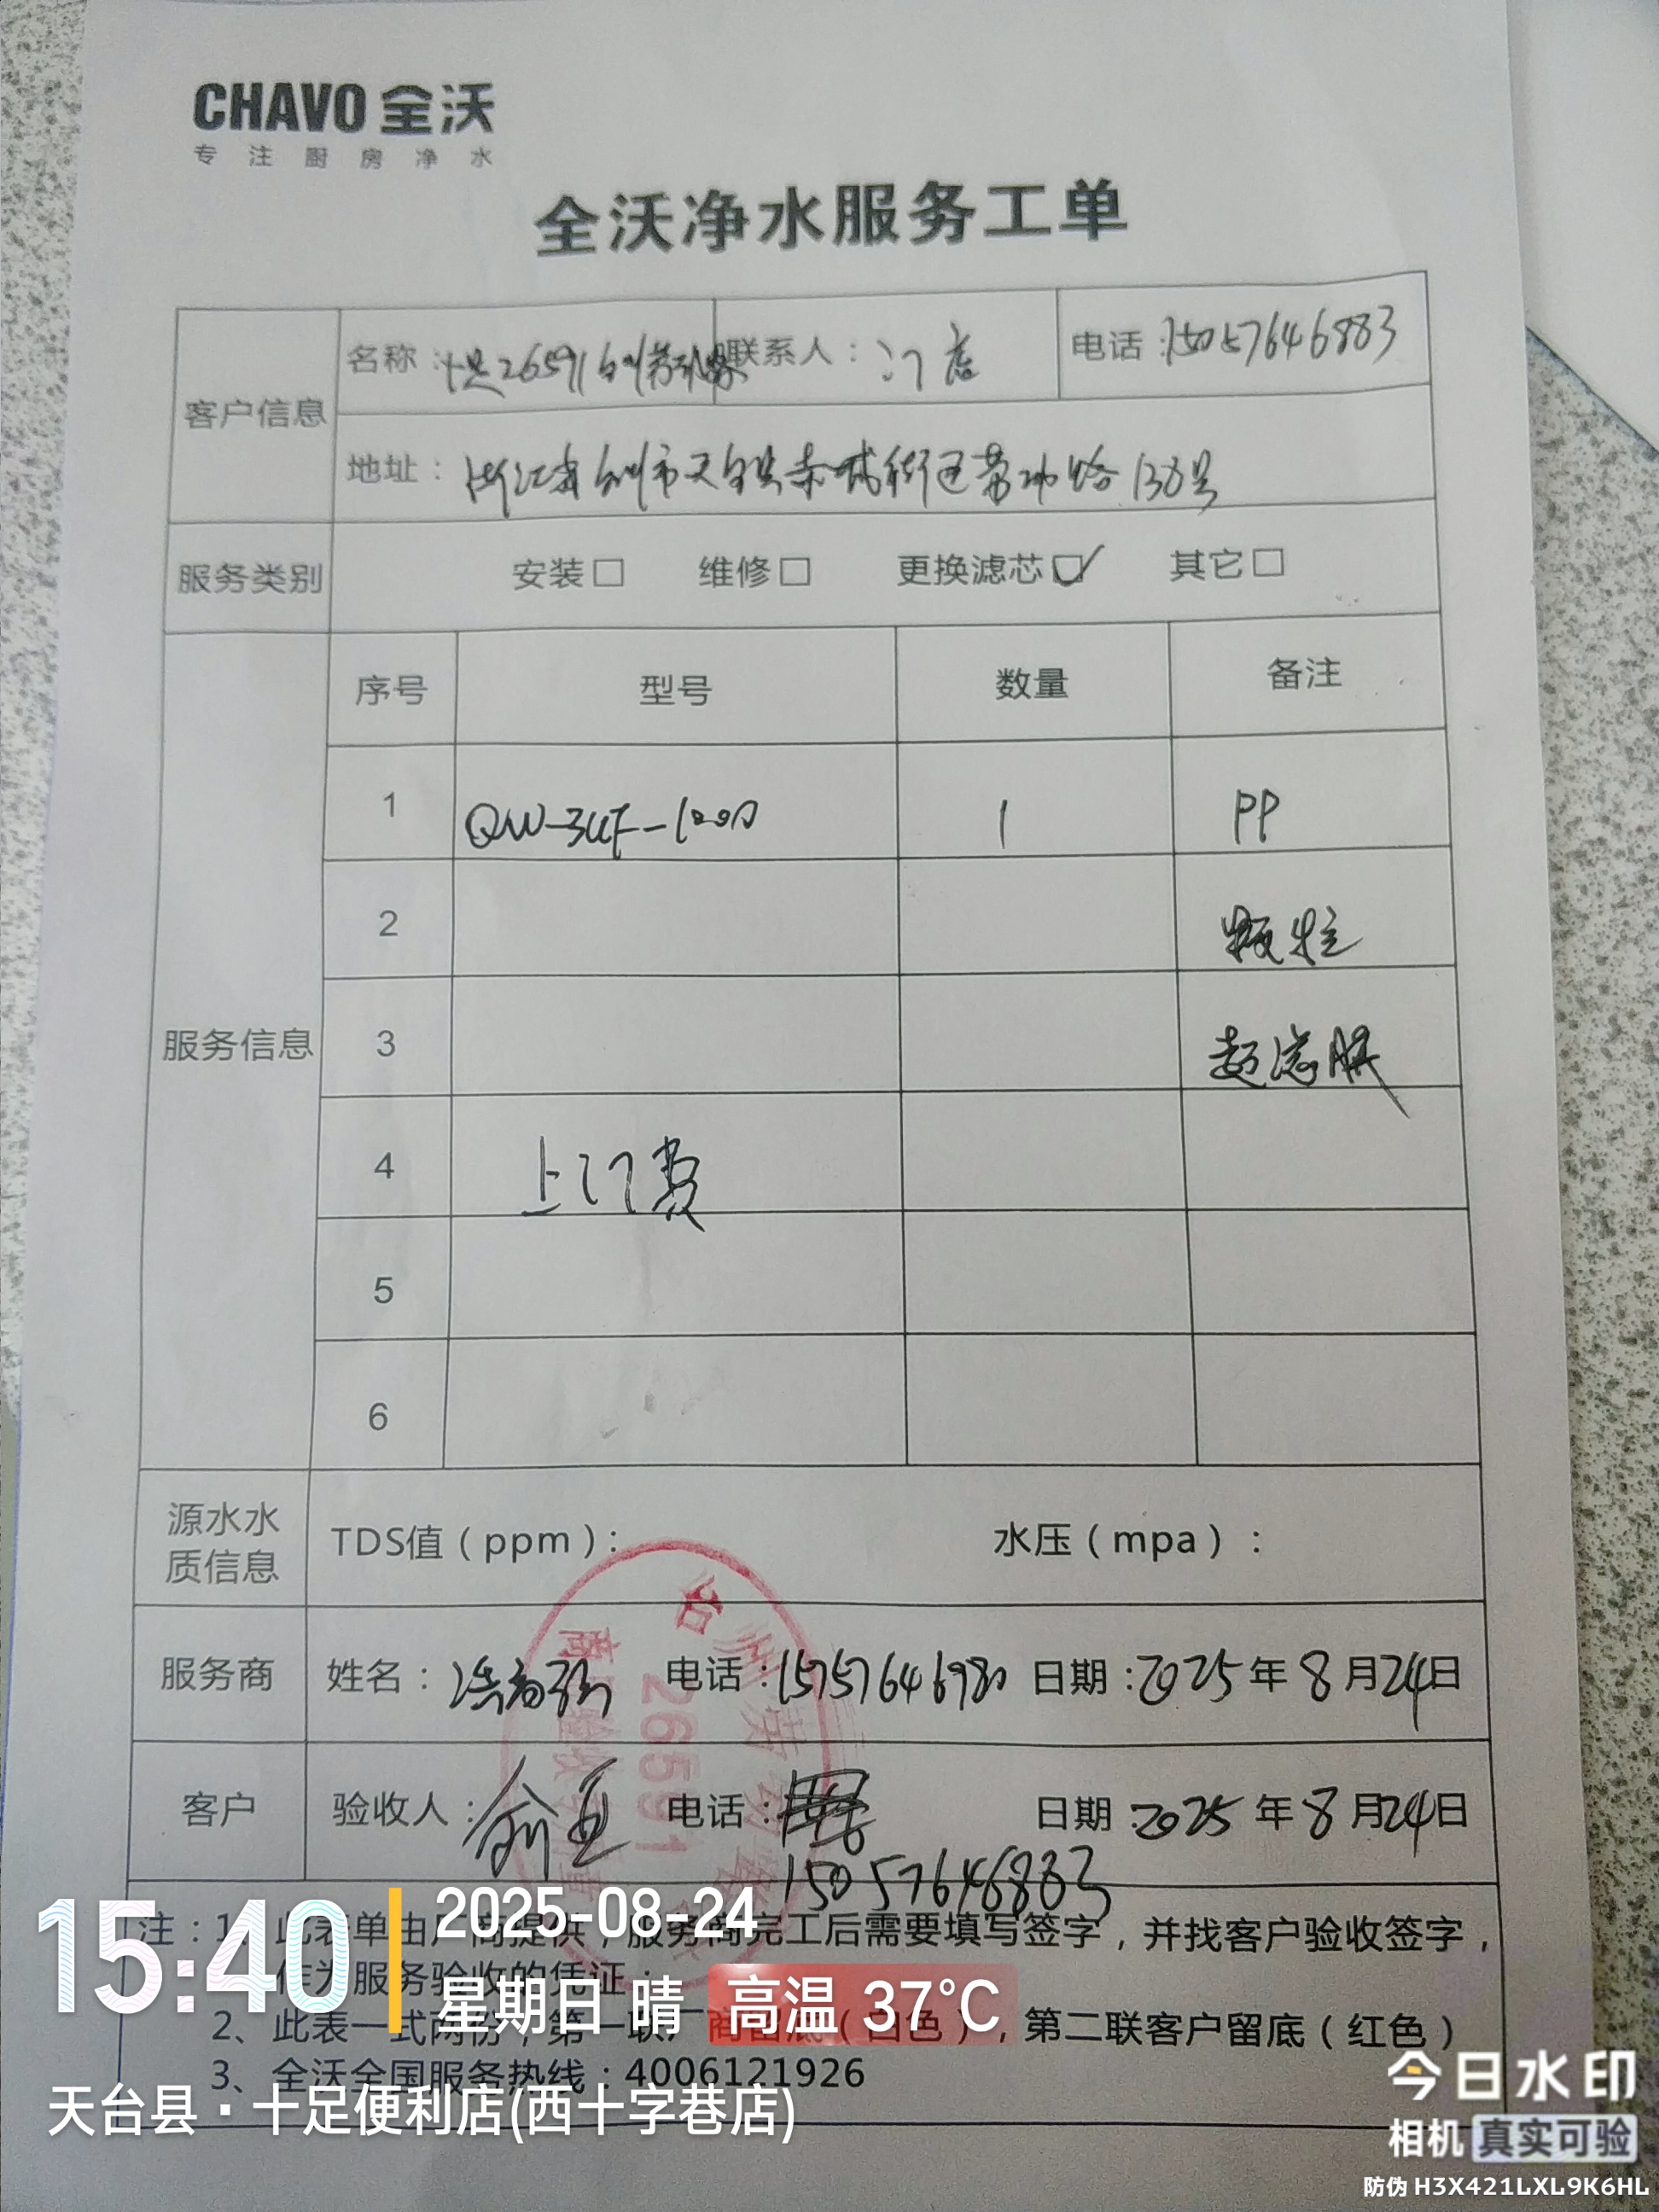 CHAVO 全沃
专注厨房净水
全沃净水服务工单
客户信息
名称：十足26591台州劳动路 联系人：门店 电话：15057646883
地址：浙江省台州市天台县赤城街道劳动路138号
服务类别 安装□ 维修□ 更换滤芯☑ 其它□
服务信息
序号 型号 数量 备注
1 QW-3UF-1000 1 PP
2 颗粒
3 超滤膜
4 上门费
5
6
源水水质信息 TDS值（ppm）： 水压（mpa）：
服务商 姓名： 电话：15757646980 日期：2025年8月24日
客户 验收人：俞 电话： 日期：2025年8月24日
15057646883
26591
注：1、此表单由厂商提供，服务商完工后需要填写签字，并找客户验收签字，
作为服务验收的凭证；
2、此表一式两份，第一联厂商留底（白色），第二联客户留底（红色）
3、全沃全国服务热线：4006121926
15:40
2025-08-24
星期日 晴 高温 37°C
天台县·十足便利店(西十字巷店)
今日水印
相机 真实可验
防伪 H3X421LXL9K6HL